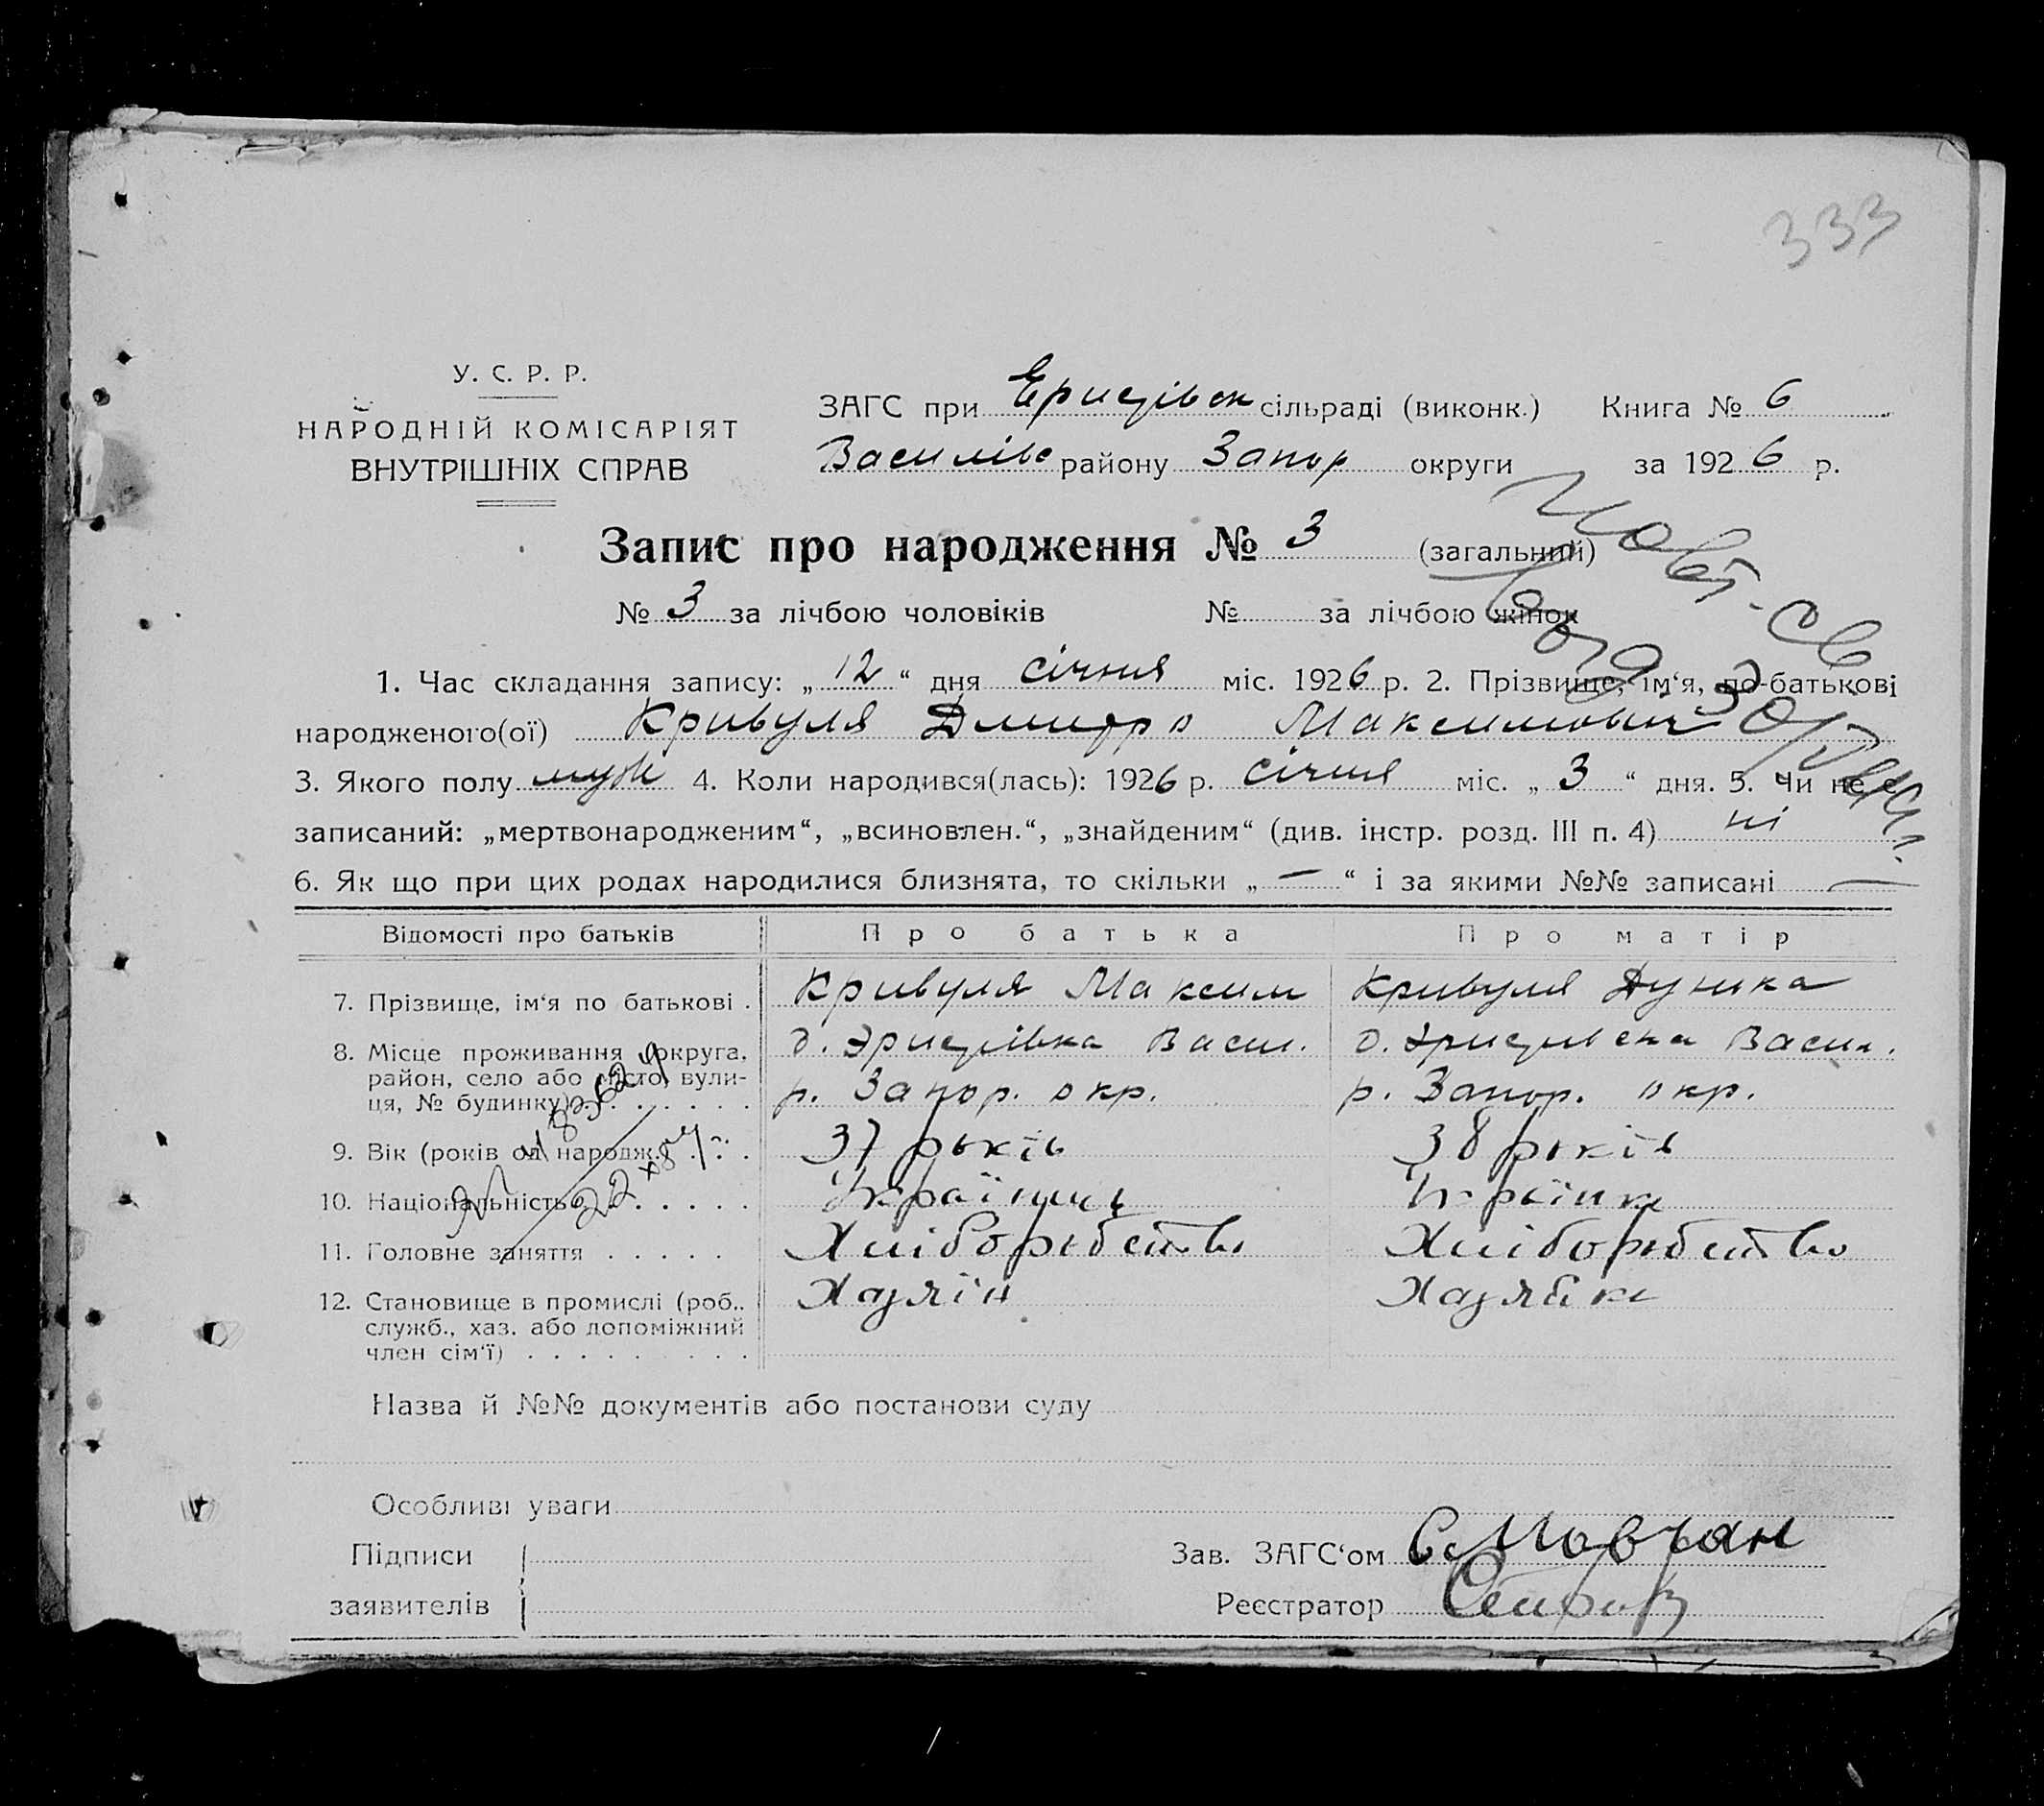 333
У. С. Р. Р.
НАРОДНІЙ КОМІСАРІЯТ
ВНУТРІШНІХ СПРАВ
ЗАГС при сільраді (виконк.) Книга № 6
Василівс району Запор округи за 1926 р.
Запис про народження № 3 (загальний)
№ 3 за лічбою чоловіків № за лічбою жінок
1. Час складання запису: „ 12 “ дня січня міс. 1926 р. 2. Прізвище, ім‘я, по-батькові
народженого(ої) Кривуля Дмитро Максимович
3. Якого полу муж 4. Коли народився(лась): 1926 р. січня міс. „ 3 “ дня. 5. Чи не є
записаний: „мертвонародженим“, „всиновлен.“, „знайденим“ (див. інстр. розд. III п. 4) ні
6. Як що при цих родах народилися близнята, то скільки „ — “ і за якими №№ записані —
Відомості про батьків Про батька Про матір
7. Прізвище, ім‘я по батькові . Кривуля Максим Кривуля Дунька
8. Місце проживання (округа, район, село або місто, вули-
ця, № будинку) . . . . . . .
р. Запор. окр. р. Запор. окр.
9. Вік (років од народж.) . . . 37 років 38 років
10. Національність . . . . . . Українець Українка
11. Головне заняття . . . . . Хліборобство Хліборобство
12. Становище в промислі (роб.. Хазяїн Хазяйка
служб., хаз. або допоміжний
член сім‘ї) . . . . . . . . .
Назва й №№ документів або постанови суду
Особливі уваги
Підписи Зав. ЗАГС‘ом Мовчан
заявителів Реєстратор